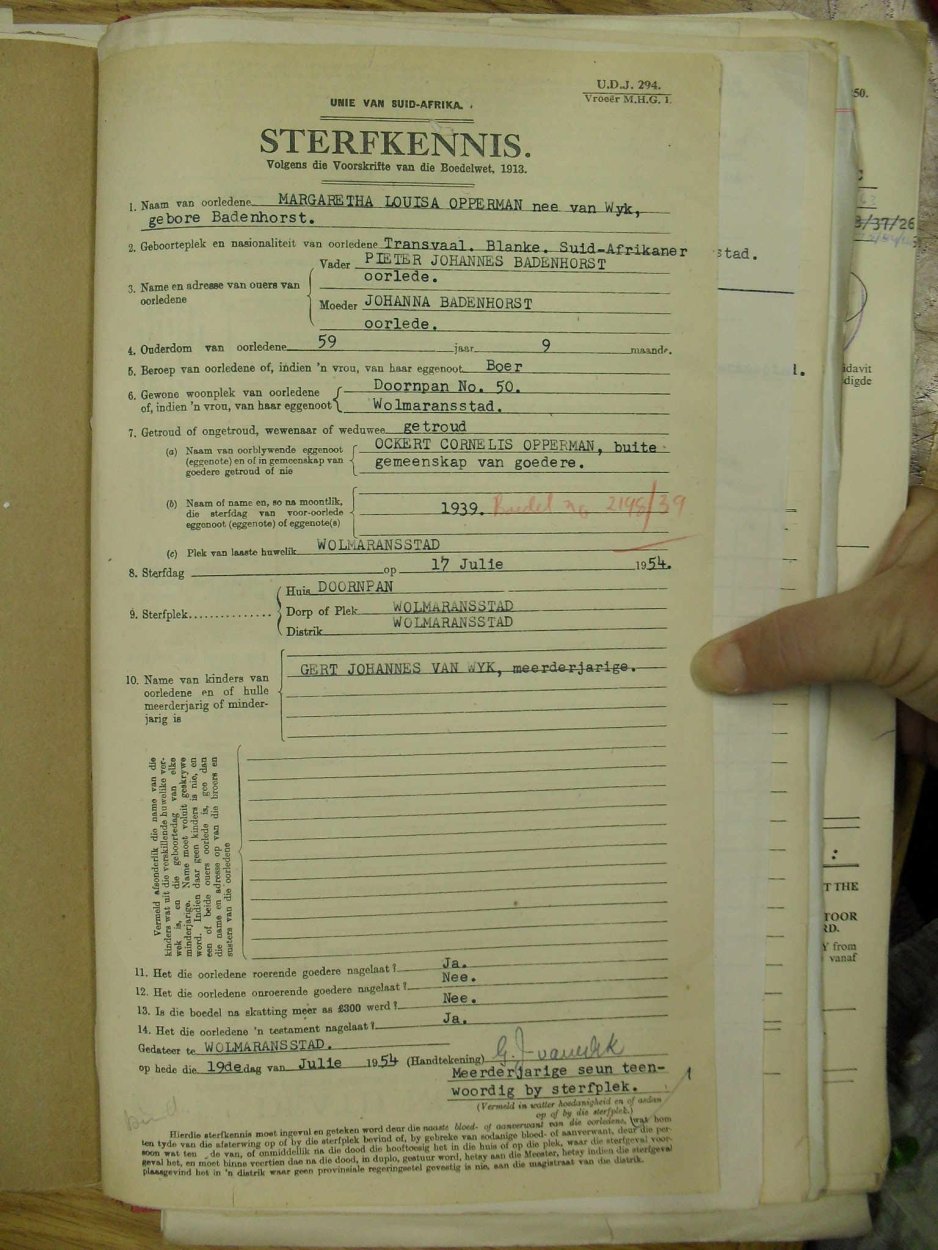 U.D.J. 294.
Vroeër M.H.G. 1.
50.
UNIE VAN SUID-AFRIKA.
STERFKENNIS.
Volgens die Voorskrifte van die Boedelwet, 1913.
1. Naam van oorledene MARGARETHA LOUISA OPPERMAN nee van Wyk,
gebore Badenhorst.
/37/26
2. Geboorteplek en nasionaliteit van oorledene Transvaal. Blanke. Suid-Afrikaner
stad.
3. Name en adresse van ouers van oorledene
Vader PIETER JOHANNES BADENHORST
oorlede.
Moeder JOHANNA BADENHORST
oorlede.
4. Ouderdom van oorledene 59 jaar 9 maande.
5. Beroep van oorledene of, indien 'n vrou, van haar eggenoot Boer
idavit
digde
1.
6. Gewone woonplek van oorledene Doornpan No. 50.
of, indien 'n vrou, van haar eggenoot Wolmaransstad.
7. Getroud of ongetroud, wewenaar of weduwee getroud
(a) Naam van oorblywende eggenoot OCKERT CORNELIS OPPERMAN, buite
(eggenote) en of in gemeenskap van gemeenskap van goedere.
goedere getroud of nie
(b) Naam of name en, so na moontlik,
die sterfdag van voor-oorlede 1939. Boedel no 2198/39
eggenoot (eggenote) of eggenote(s)
(c) Plek van laaste huwelik WOLMARANSSTAD
8. Sterfdag op 17 Julie 1954.
9. Sterfplek
Huis DOORNPAN
Dorp of Plek WOLMARANSSTAD
Distrik WOLMARANSSTAD
GERT JOHANNES VAN WYK, meerderjarige.
10. Name van kinders van
oorledene en of hulle
meerderjarig of minder-
jarig is
Vermeld afsonderlik die name van die
kinders wat uit die verskillende huwelike ver-
wek is, en die geboortedag van elke
minderjarige. Name moet voluit geskrywe
word. Indien daar geen kinders is nie, en
een of beide ouers oorlede is, gee dan
die name en adresse op van die broers en
susters van die oorledene
:
T THE
TOOR
RD.
Y from
vanaf
11. Het die oorledene roerende goedere nagelaat? Ja.
12. Het die oorledene onroerende goedere nagelaat? Nee.
13. Is die boedel na skatting meer as £300 werd? Nee.
14. Het die oorledene 'n testament nagelaat? Ja.
Gedateer te WOLMARANSSTAD.
op hede die 19de dag van Julie 1954 (Handtekening) G. J. van Wyk
Meerderjarige seun teen-
woordig by sterfplek.
(Vermeld in watter hoedanigheid en of aldan
op of by die sterfplek.)
Hierdie sterfkennis moet ingevul en geteken word deur die naaste bloed- of aanverwant van die oorledene, wat hom
ten tyde van die afsterwing op of by die sterfplek bevind of, by gebreke van sodanige bloed- of aanverwant, deur die per-
soon wat ten de van, of onmiddellik na die dood die hooftoesig het in die huis of op die plek, waar die sterfgeval voor-
geval het, en moet binne veertien dae na die dood, in duplo, gestuur word, hetsy aan die Meester, hetsy indien die sterfgeval
plaasgevind het in 'n distrik waar geen provinsiale regeringsetel gevestig is nie, aan die magistraat van die distrik.